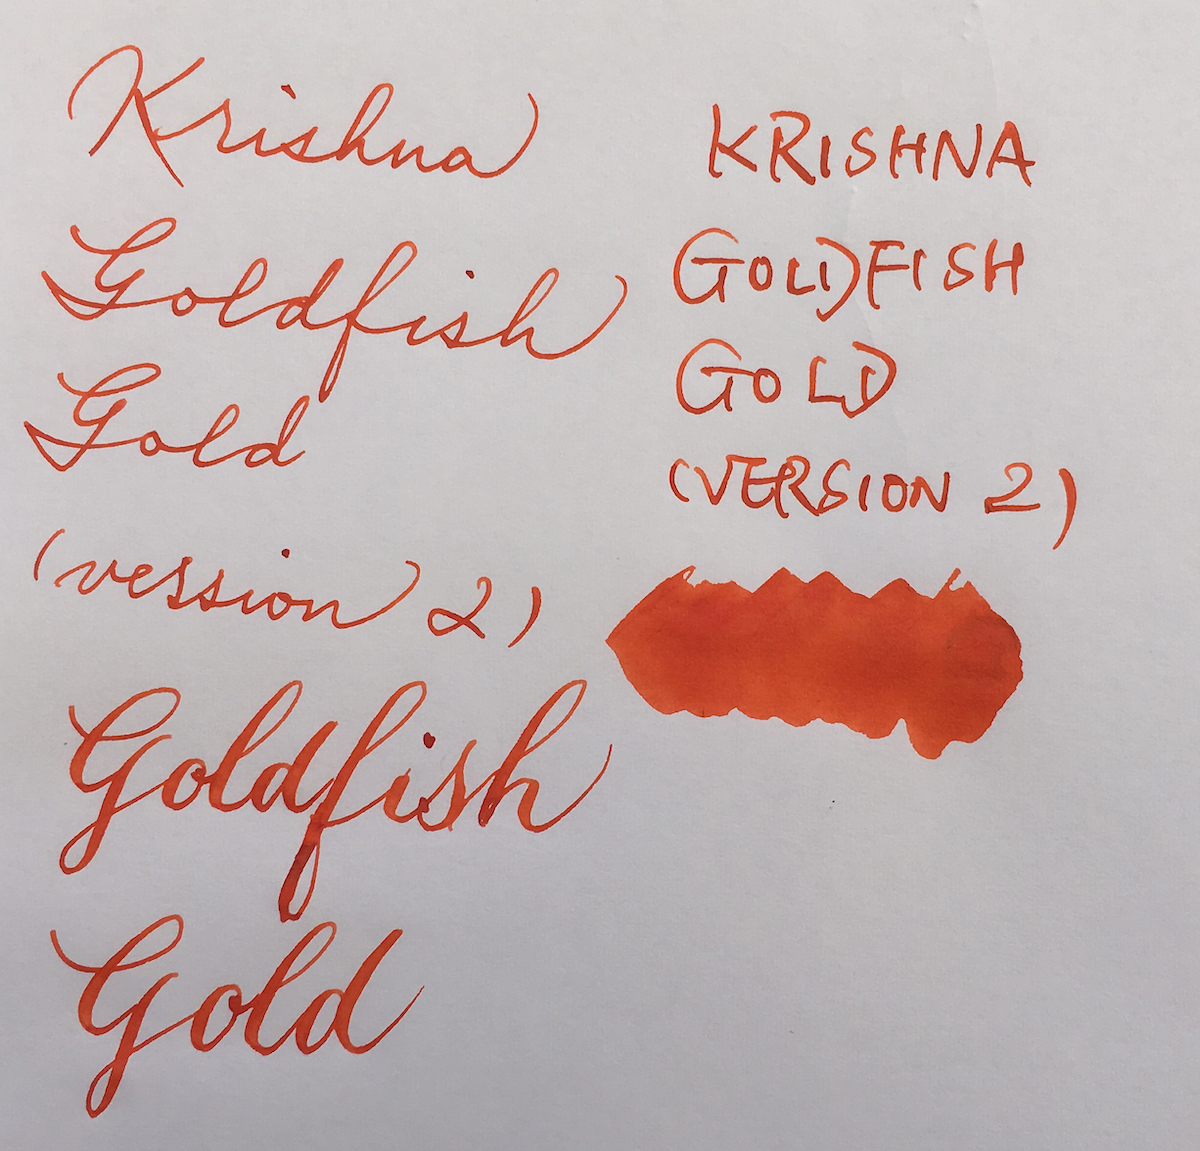 Krishna
Goldfish
Gold
(version 2)
Goldfish
Gold
KRISHNA
GOLDFISH
GOLD
(VERSION 2)